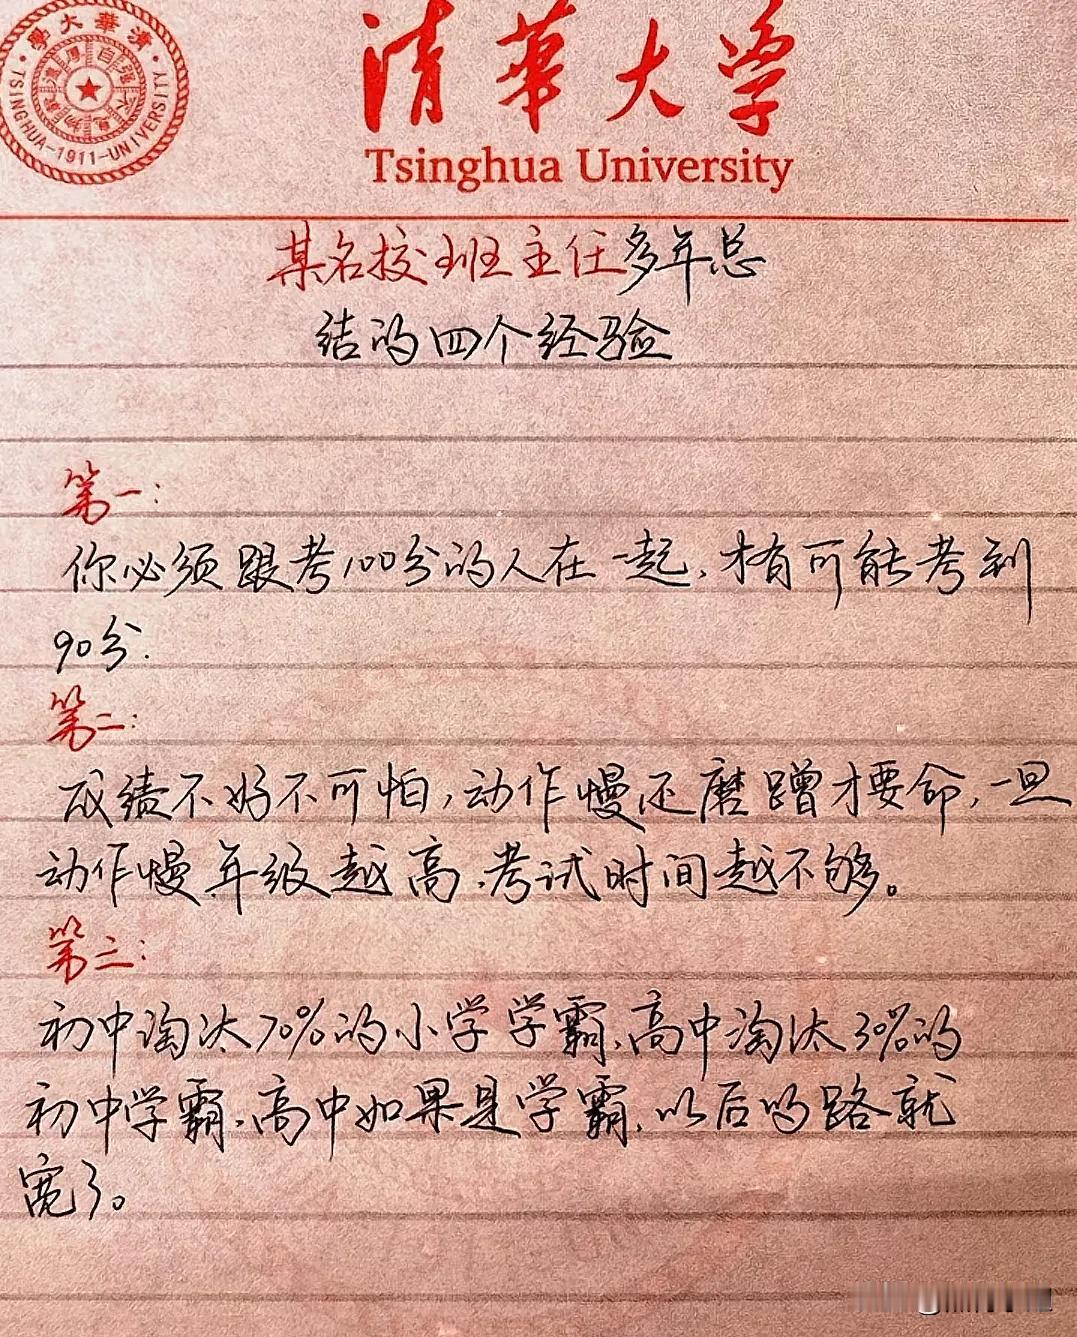 清華大學
Tsinghua University
清華大學
自强不息
厚德載物
TSINGHUA-1911-UNIVERSITY
某名校班主任多年总
结的四个经验
第一:
你必须跟考100分的人在一起,才有可能考到
90分.
第二:
成绩不好不可怕,动作慢还磨蹭才要命,一旦
动作慢年级越高,考试时间越不够。
第三:
初中淘汰70%的小学学霸,高中淘汰30%的
初中学霸,高中如果是学霸,以后的路就
宽了。